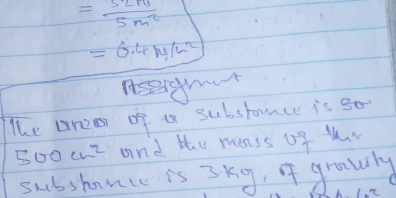 = 32N
5m²
= 6.4 N/m²
Assignment
The area of a substance is 50
500cm² and the mass of the
substance is 3kg, if gravity